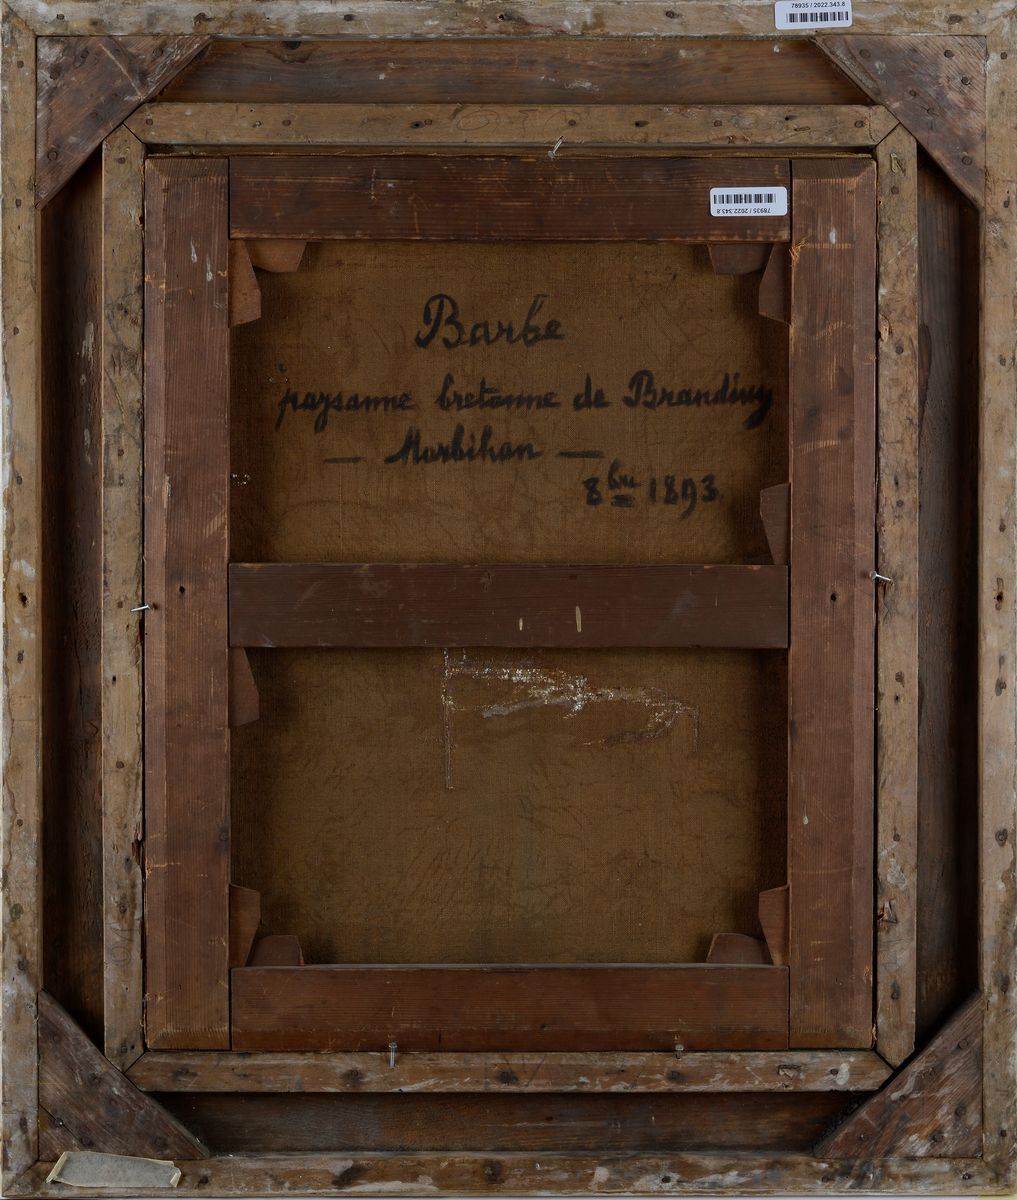 78935 / 2022.343.8
78935 / 2022.343.8
Barbe
paysanne bretonne de Brandivy
— Morbihan —
8bre 1893